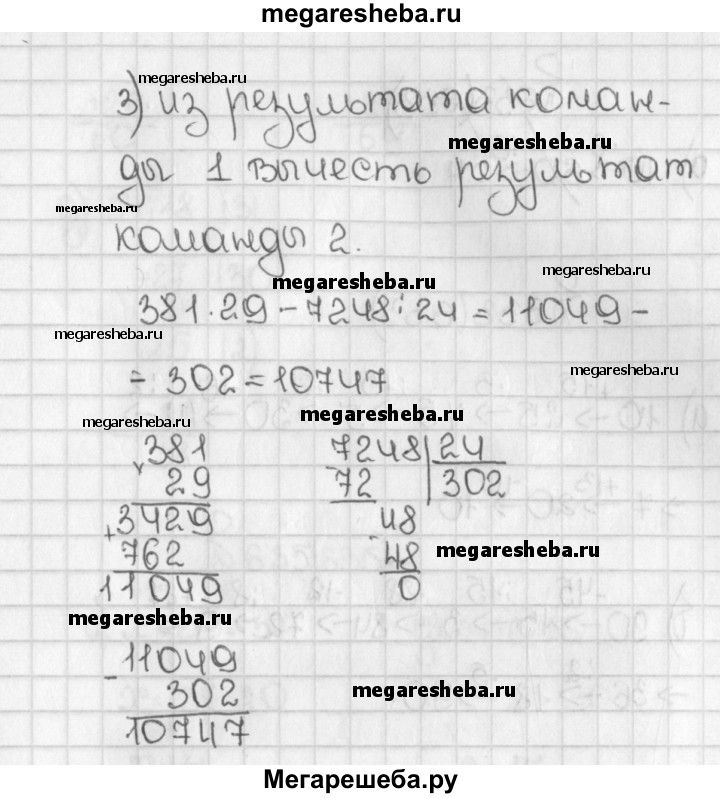 megaresheba.ru
megaresheba.ru
3) из результата коман-
megaresheba.ru
ды 1 вычесть результат
megaresheba.ru
команды 2.
megaresheba.ru
megaresheba.ru
381·29-7248:24=11049-
megaresheba.ru
megaresheba.ru
- 302=10747
megaresheba.ru
megaresheba.ru
381 7248 24
× 29 - 72 302
+ 3429 - 48
762 48 megaresheba.ru
11049 0
megaresheba.ru
- 11049
302 megaresheba.ru
10747
Мегарешеба.ру